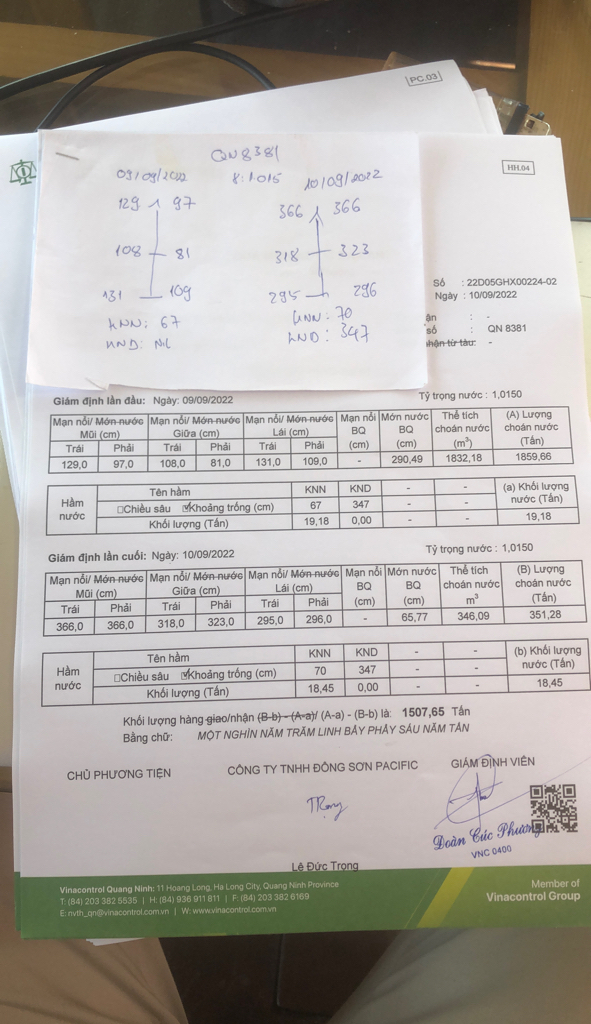 PC.03
HH.04
QN 8381
09/09/2022 8:1.015 10/09/2022
129 97 366 366
108 81 318 323
131 109 295 296
KNN: 67 KNN: 70
KND: NL KND: 347
Số : 22D05GHX00224-02
Ngày : 10/09/2022
ận : -
số : QN 8381
nhận từ tàu: -
Giám định lần đầu: Ngày: 09/09/2022 Tỷ trọng nước : 1,0150
Mạn nổi/ Mớn nước Mũi (cm) Mạn nổi/ Mớn nước Giữa (cm) Mạn nổi/ Mớn nước Lái (cm) Mạn nổi BQ (cm) Mớn nước BQ (cm) Thể tích choán nước (m³) (A) Lượng choán nước (Tấn)
Trái Phải Trái Phải Trái Phải
129,0 97,0 108,0 81,0 131,0 109,0 - 290,49 1832,18 1859,66
Hầm nước Tên hầm KNN KND - - (a) Khối lượng nước (Tấn)
☐Chiều sâu ☑Khoảng trống (cm) 67 347 - -
Khối lượng (Tấn) 19,18 0,00 - - 19,18
Giám định lần cuối: Ngày: 10/09/2022 Tỷ trọng nước : 1,0150
Mạn nổi/ Mớn nước Mũi (cm) Mạn nổi/ Mớn nước Giữa (cm) Mạn nổi/ Mớn nước Lái (cm) Mạn nổi BQ (cm) Mớn nước BQ (cm) Thể tích choán nước m³ (B) Lượng choán nước (Tấn)
Trái Phải Trái Phải Trái Phải
366,0 366,0 318,0 323,0 295,0 296,0 - 65,77 346,09 351,28
Hầm nước Tên hầm KNN KND - - (b) Khối lượng nước (Tấn)
☐Chiều sâu ☑Khoảng trống (cm) 70 347 - -
Khối lượng (Tấn) 18,45 0,00 - - 18,45
Khối lượng hàng giao/nhận (B-b) - (A-a)/ (A-a) - (B-b) là: 1507,65 Tấn
Bằng chữ: MỘT NGHÌN NĂM TRĂM LINH BẢY PHẨY SÁU NĂM TẤN
CHỦ PHƯƠNG TIỆN CÔNG TY TNHH ĐÔNG SƠN PACIFIC GIÁM ĐỊNH VIÊN
TRọng
Đoàn Cúc Phương
VNC 0400
Lê Đức Trọng
Vinacontrol Quang Ninh: 11 Hoang Long, Ha Long City, Quang Ninh Province
T: (84) 203 382 5535 | H: (84) 936 911 811 | F: (84) 203 382 6169
E: nvth_qn@vinacontrol.com.vn | W: www.vinacontrol.com.vn
Member of
Vinacontrol Group